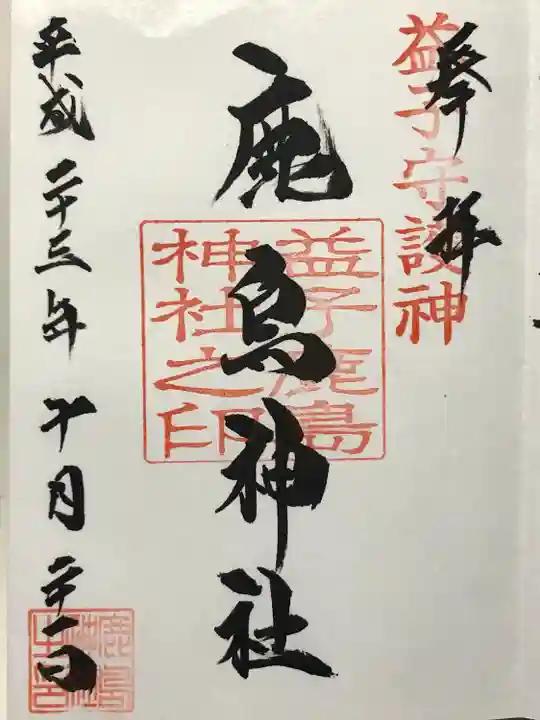 奉拝
益子守護神
鹿島神社
益子鹿島
神社之印
平成二十三年十月二十一日
鹿島
神社